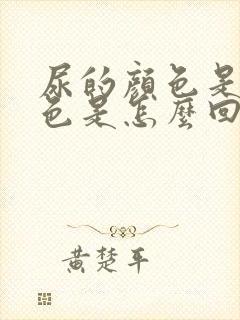 尿的顏色是
色是怎麼回
黃楚平